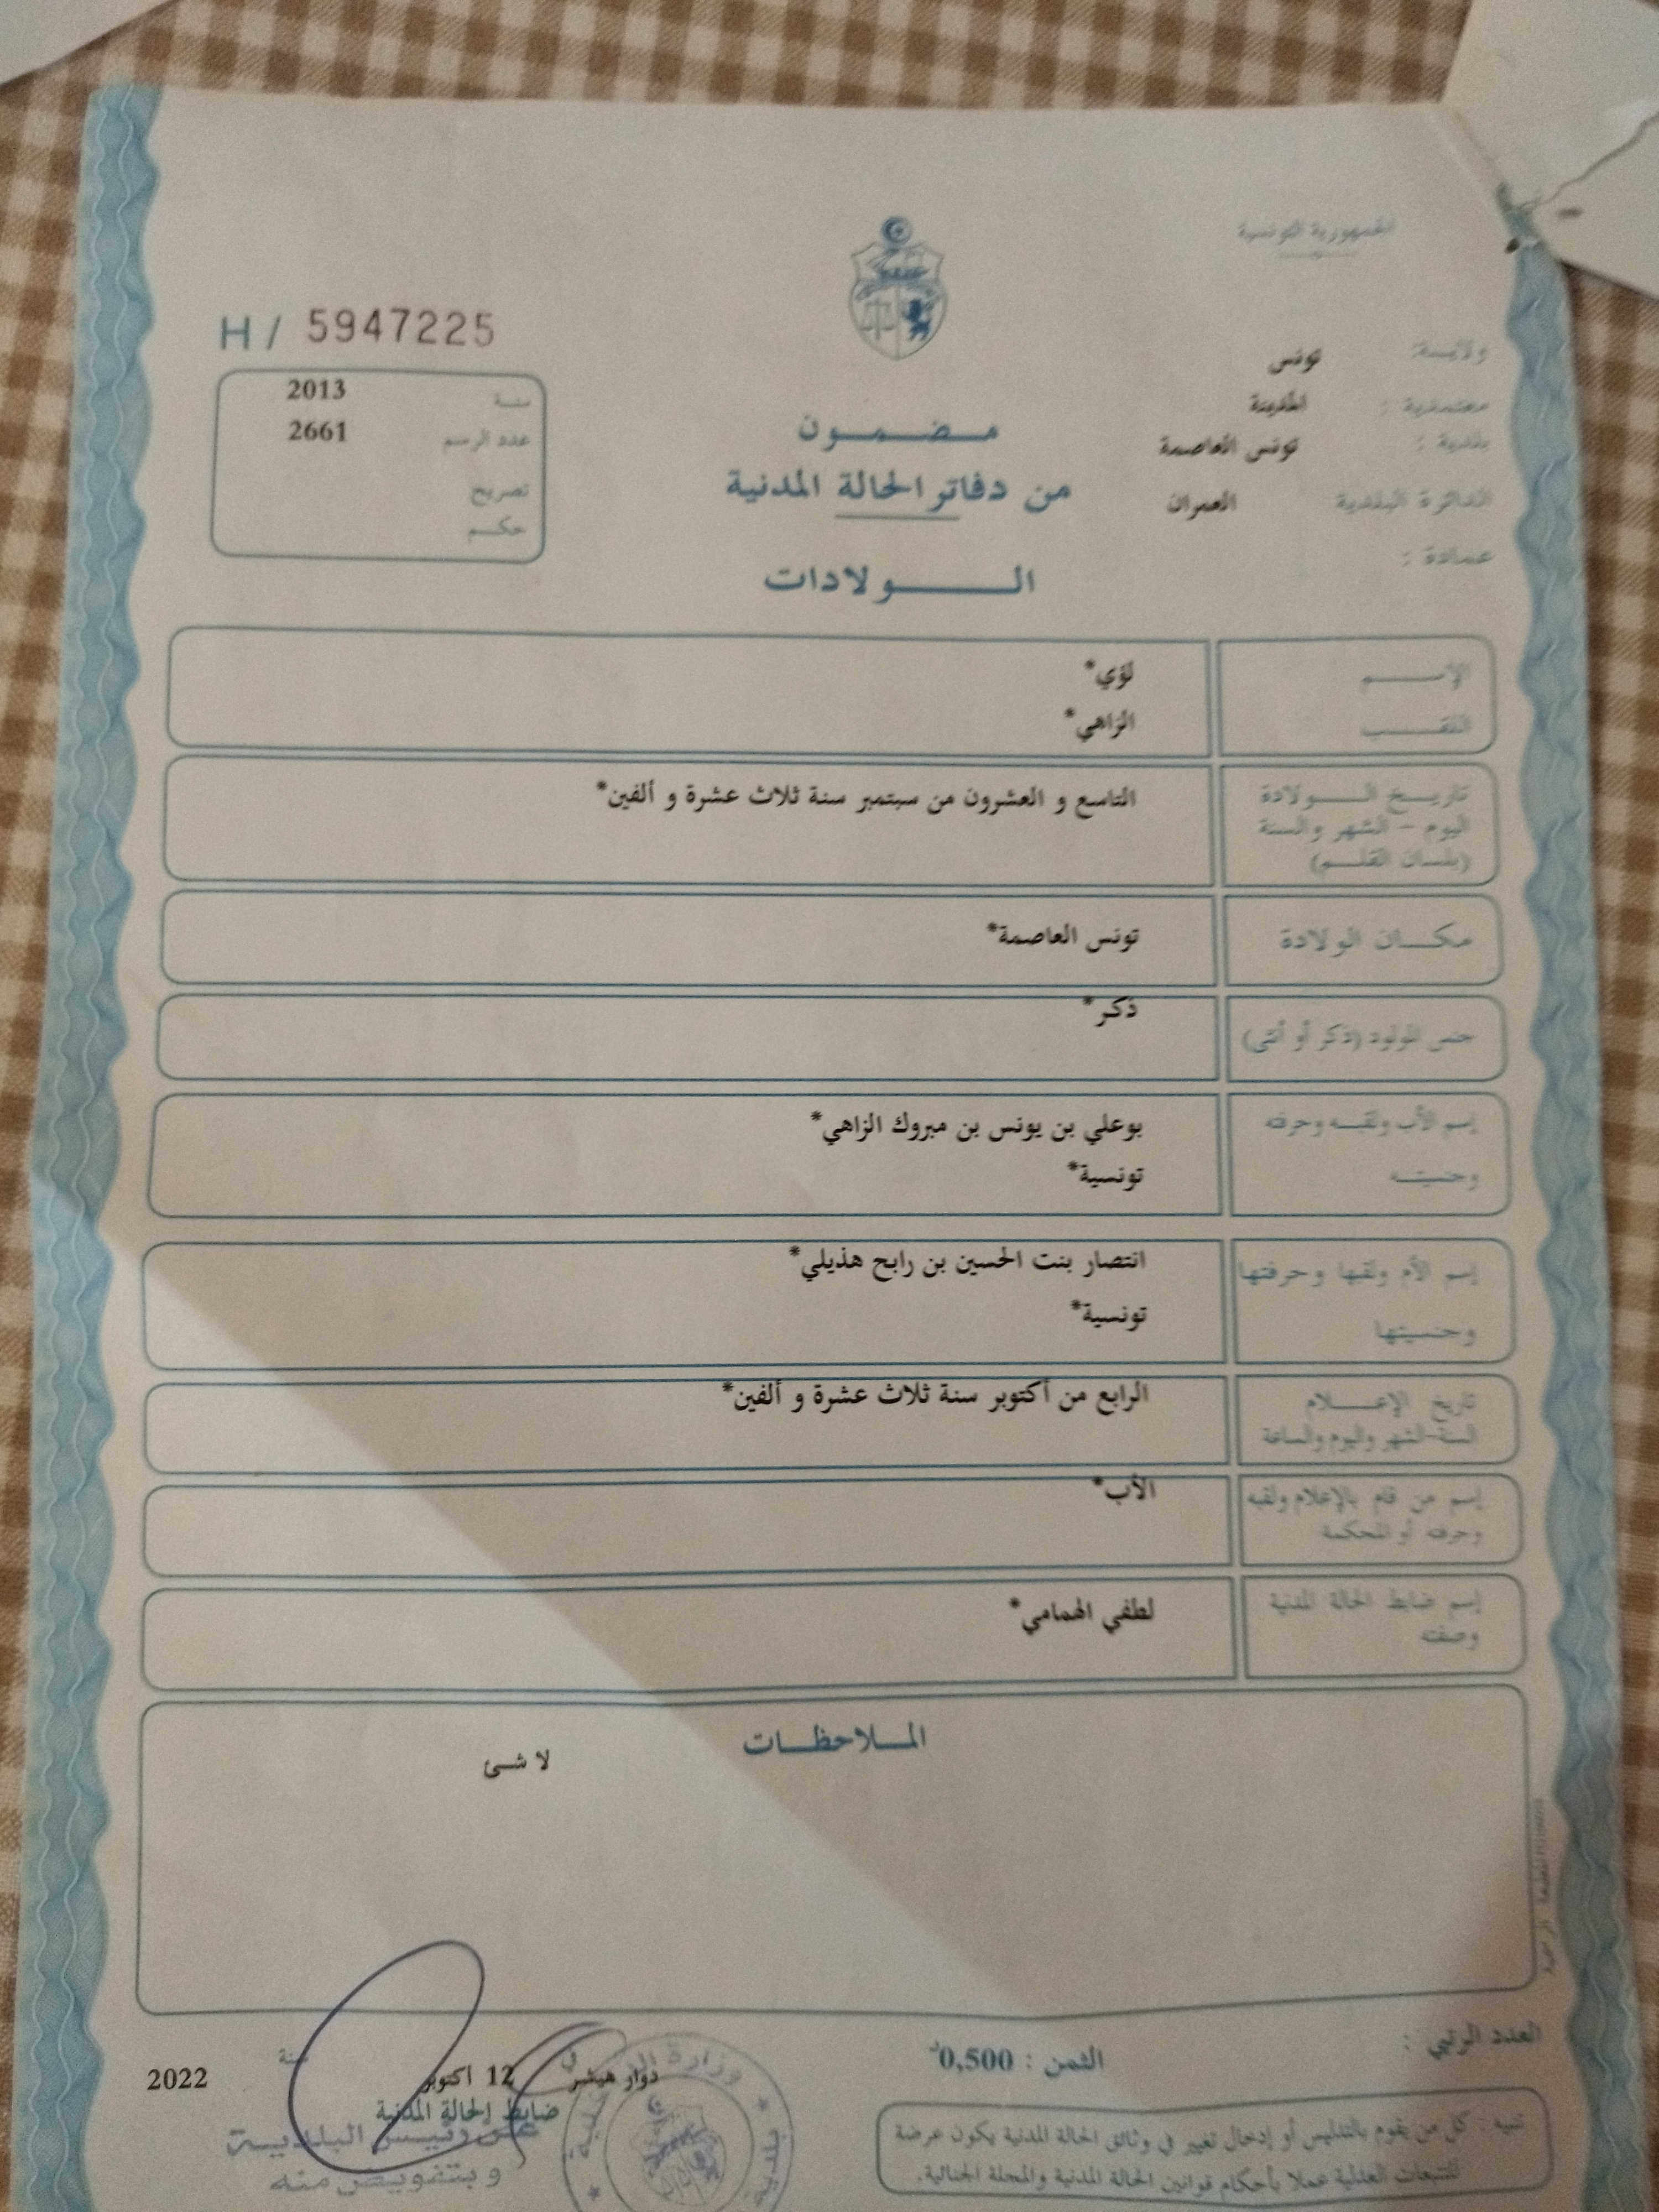 الجمهورية التونسية
H / 5947225
ولايـــة: تونس
معتمدية : المدينة
بلدية : تونس العاصمة
الدائرة البلدية العمران
عمادة :
سنـة 2013
عدد الرسم 2661
تصريح
حكـم
مـضـمـون
من دفاتر الحالة المدنية
الـولادات
الإســم لؤي*
اللقــب الزاهي*
تاريـخ الـولادة
اليوم - الشهر والسنة
(بلسان القلـم)
التاسع و العشرون من سبتمبر سنة ثلاث عشرة و ألفين*
مكـان الولادة تونس العاصمة*
جنس المولود (ذكر أو أنثى) ذكر*
إسم الأب ولقبـه وحرفته بوعلي بن يونس بن مبروك الزاهي*
وجنسيتـه تونسية*
إسم الأم ولقبها وحرفتها انتصار بنت الحسين بن رابح هذيلي*
وجنسيتها تونسية*
تاريخ الإعـلام
السنة-الشهر واليوم والساعة
الرابع من أكتوبر سنة ثلاث عشرة و ألفين*
إسم من قام بالإعلام ولقبه
وحرفته أو المحكمة
الأب*
إسم ضابط الحالة المدنية
وصفته
لطفي الهمامي*
المـلاحظـات
لا شئ
العدد الرتبي :
الثمن : 0,500د
دوار هيشر في 12 اكتوبر سنة 2022
ضابط الحالة المدنية
عن رئيس البلدية
و بتفويض منه
تنبيه : كل من يقوم بالتدليس أو إدخال تغيير في وثائق الحالة المدنية يكون عرضة
للتتبعات العدلية عملا بأحكام قوانين الحالة المدنية والمجلة الجنائية.